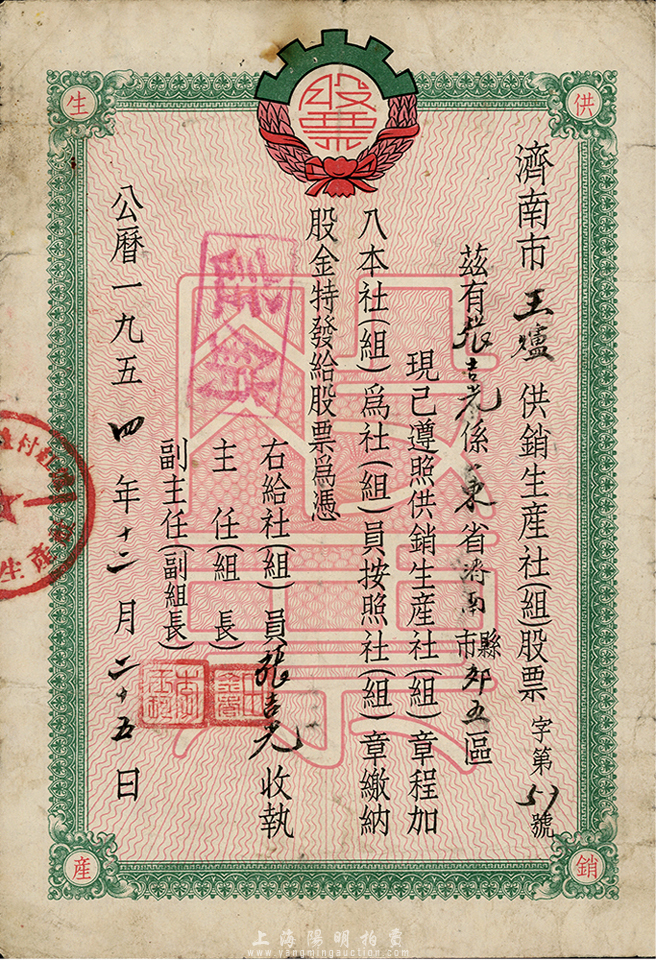 股票
供
銷
生
產
濟南市玉爐供銷生産社(組)股票 字第57號
茲有張吉光係山東省濟南市縣郊五區
現已遵照供銷生産社(組)章程加
入本社(組)爲社(組)員按照社(組)章繳納
股金特發給股票爲憑
右給社(組)員張吉光收執
主任(組長)
副主任(副組長)
公曆一九五四年十二月二十五日
股票
上海陽明拍賣
www.yangmingauction.com